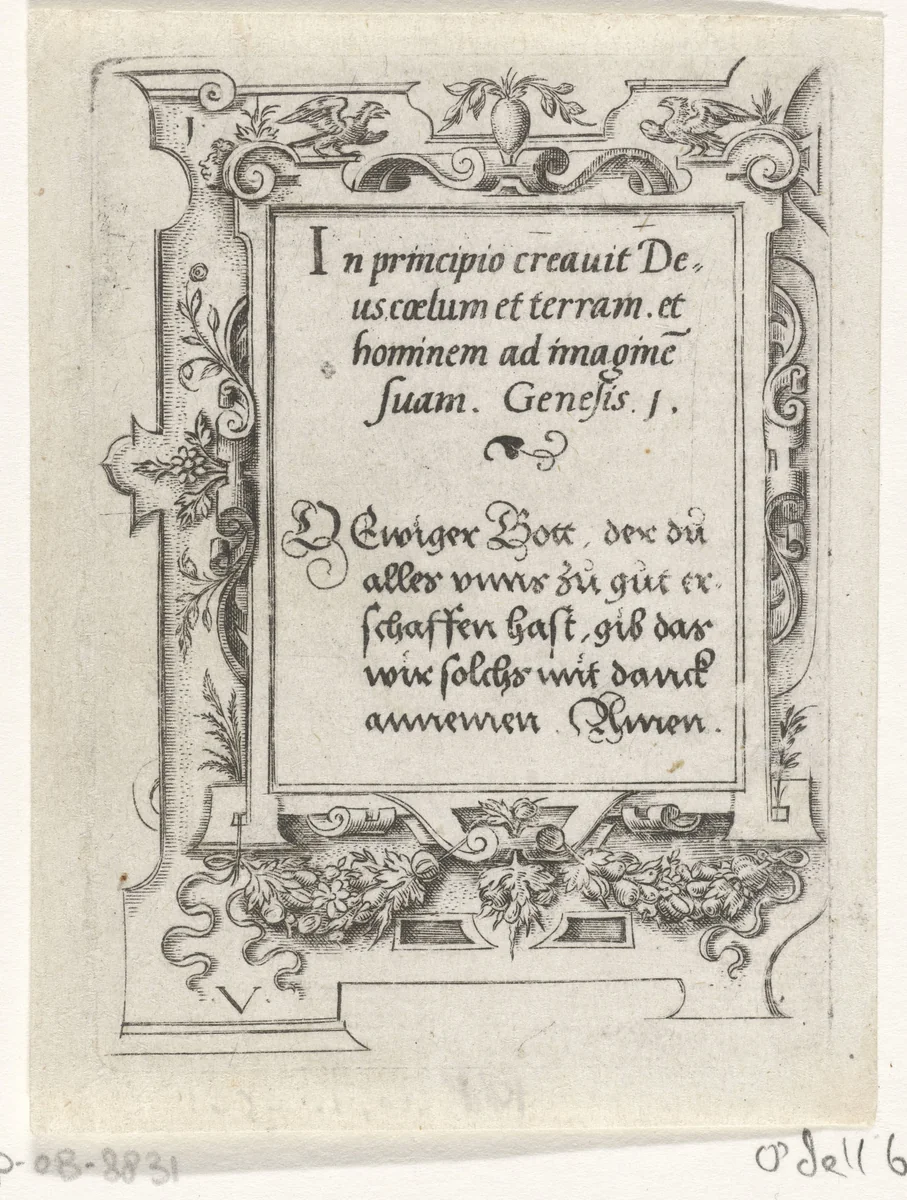 1.
In principio creauit De„
us cœlum et terram. et
hominem ad imaginē
suam. Genesis. 1.
O Ewiger Gott, der du
alles vnns zu gut er-
schaffen hast, gib das
wir solchs mit danck
annemen. Amen.
V
p-OB-8831